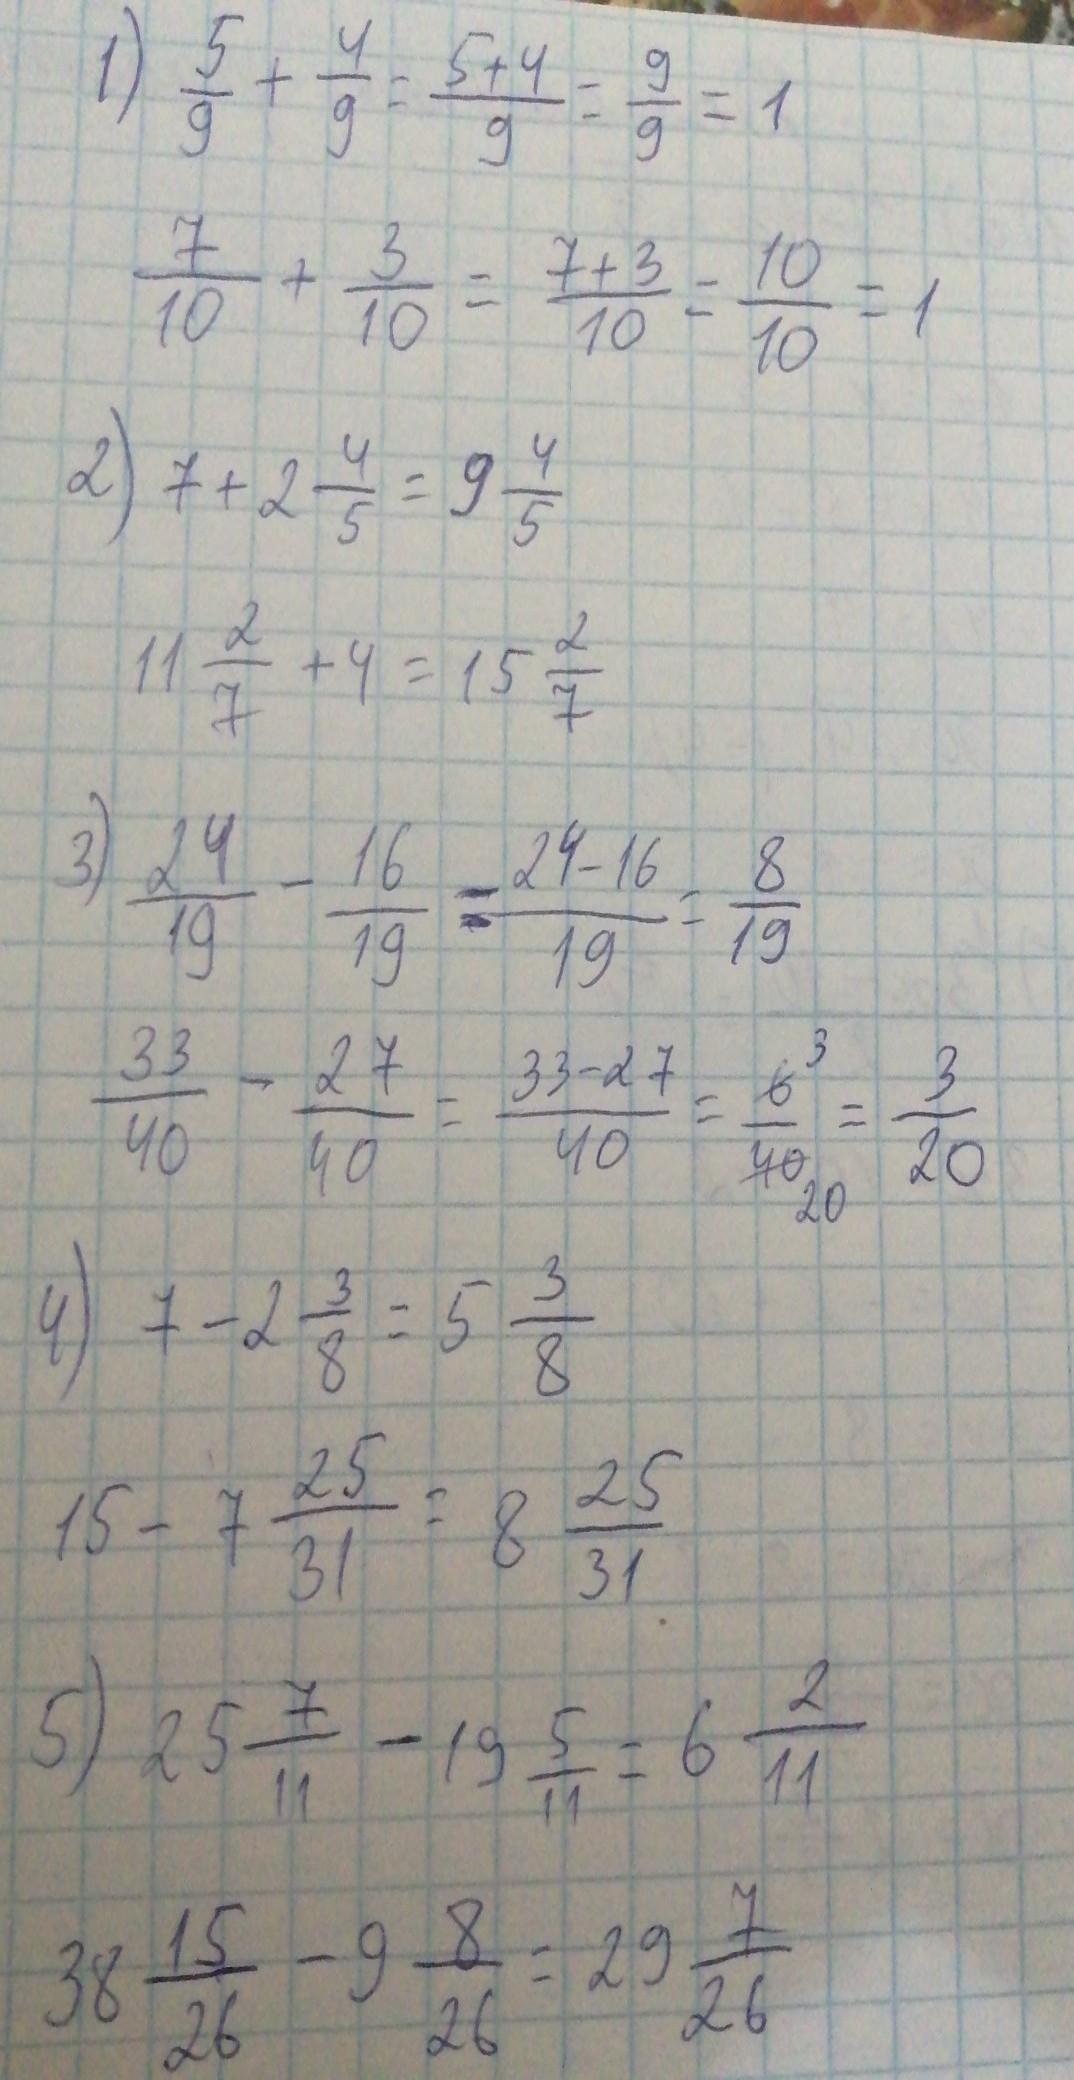 1) 5/9 + 4/9 = 5+4/9 = 9/9 = 1
7/10 + 3/10 = 7+3/10 = 10/10 = 1
2) 7 + 2 4/5 = 9 4/5
11 2/7 + 4 = 15 2/7
3) 24/19 - 16/19 = 24-16/19 = 8/19
33/40 - 27/40 = 33-27/40 = 6 3/40 20 = 3/20
4) 7 - 2 3/8 = 5 3/8
15 - 7 25/31 = 8 25/31
5) 25 7/11 - 19 5/11 = 6 2/11
38 15/26 - 9 8/26 = 29 7/26